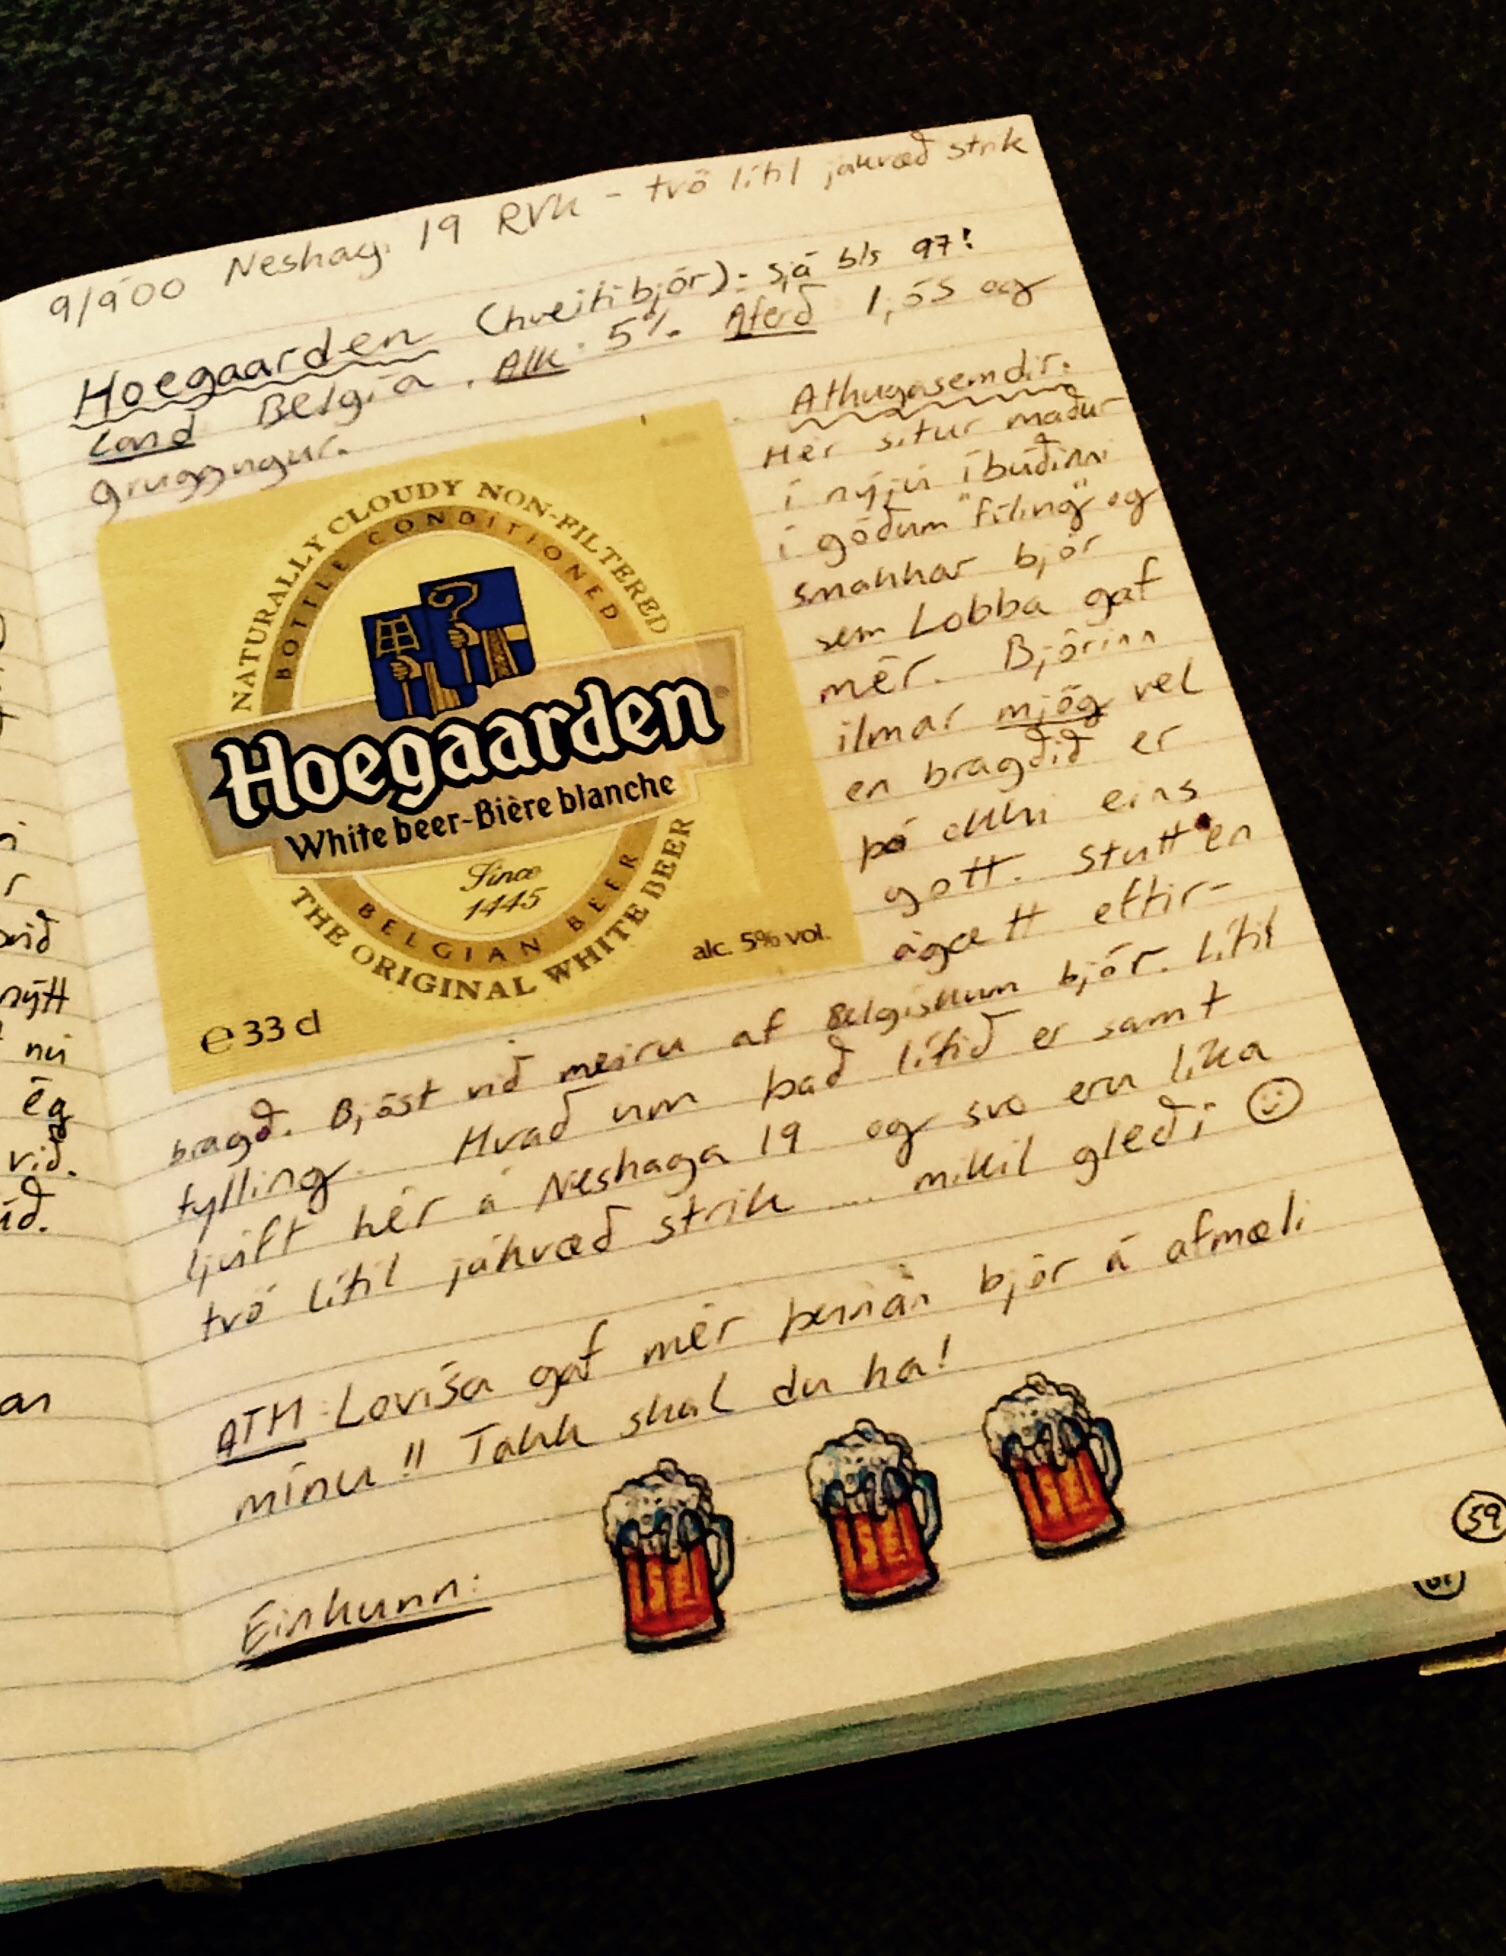 9/9'00 Neshag. 19 RVK - tvö lítil jákvæð strik
Hoegaarden (hveitibjór): sjá bls 97!
Land Belgía. Alk: 5% Áferð ljós og
gruggugur.
Athugasemdir:
Hér situr maður
í nýju íbúðinni
í góðum "fíling" og
smakkar bjór
sem Lobba gaf
mér. Björinn
ilmar mjög vel
en bragðið er
þó ekki eins
gott. Stutt en
ágætt eftir-
bragð. Bjóst við meiru af Belgiskum bjór. Lítil
fylling. Hvað um það lífið er samt
ljúft hér á Neshaga 19 og svo eru líka
tvö lítil jákvæð strik ... mikil gleði ☺
ATH Lovísa gaf mér þennan bjór á afmæli
mínu!! Takk skal du ha!
Einkunn:
59
NATURALLY CLOUDY NON-FILTERED
BOTTLE CONDITIONED
Hoegaarden
White beer-Bière blanche
Since
1445
BELGIAN BEER
THE ORIGINAL WHITE BEER
alc. 5% vol.
e 33 cl
nýtt
nú
ég
við.
an